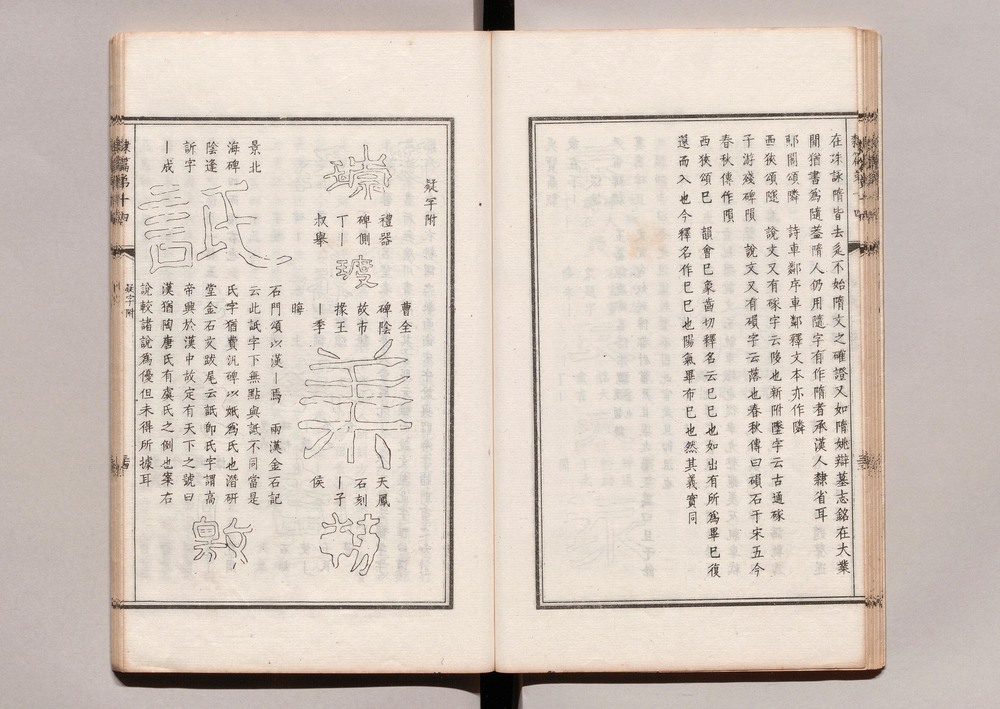 在珠詠隋皆去辵不始隋文之確證又如隋姚辯墓志銘在大業
開猶書為隨蓋隋人仍用隨字有作隋者承漢人隸省耳
郙閣頌隣　詩車鄰序車鄰釋文本亦作隣
西狹頌隧　說文又有硺字云陊也新附墜字云古通硺
子游殘碑隕　說文又有磒字云落也春秋傳曰磒石于宋五今
春秋傳作隕
西狹頌巳　韻會巳象齒切釋名云巳巳也如出有所為畢巳復
還而入也今釋名作巳巳也陽氣畢布巳也然其義實同
疑字附
禮器
碑側
丁
叔舉
曹全
碑陰
故市
掾王
丨季
晦
天鳳
石刻
丨子
侯
石門頌以漢丨焉　兩漢金石記
云此詆字下無點與詆不同當是
氏字猶費汎碑以妷為氏也潛研
堂金石文跋尾云詆即氏字謂高
帝興於漢中故定有天下之號曰
漢猶陶唐氏有虞氏之例也案右
說較諸說為優但未得所據耳
景北
海碑
陰逢
訢字
丨成
隸篇第十四
疑字附